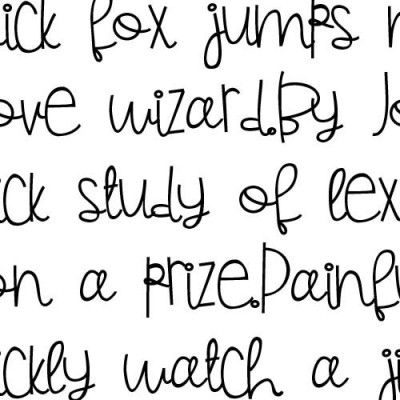 ick fox jumps n
ove wizard.By Jo
ick study of lex
on a prize.Painfu
ickly watch a ji